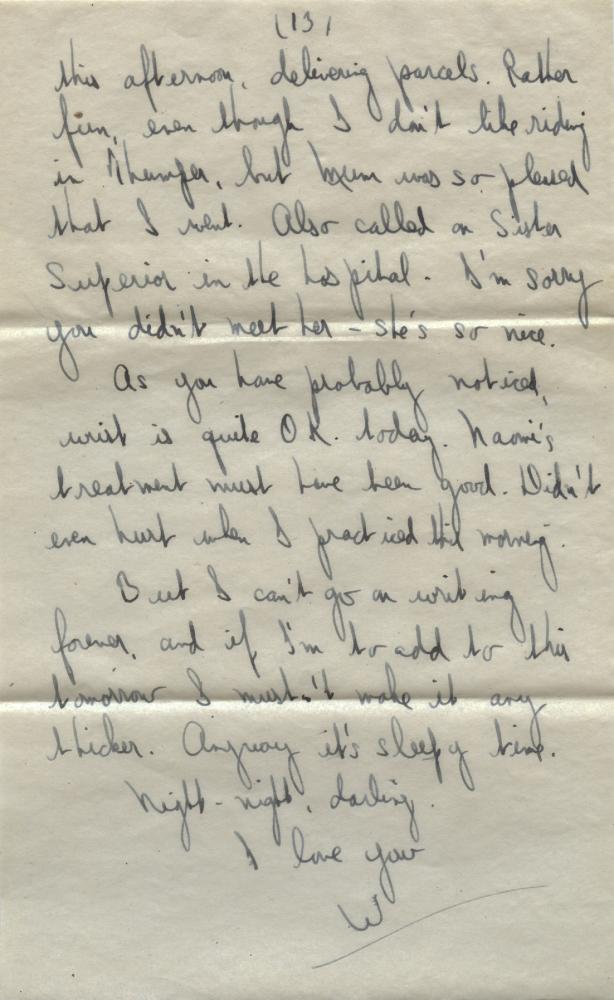 (13)
this afternoon, delivering parcels. Rather
fun, even though I don't like riding
in Thumper, but Mum was so pleased
that I went. Also called on Sister
Superior in the hospital. I'm sorry
you didn't meet her - she's so nice.
As you have probably noticed,
wrist is quite OK. today. Naomi's
treatment must have been good. Didn't
even hurt when I practiced this morning.
But I can't go on writing
forever, and if I'm to add to this
tomorrow I mustn't make it any
thicker. Anyway it's sleepy time.
Night-night, darling.
I love you
W